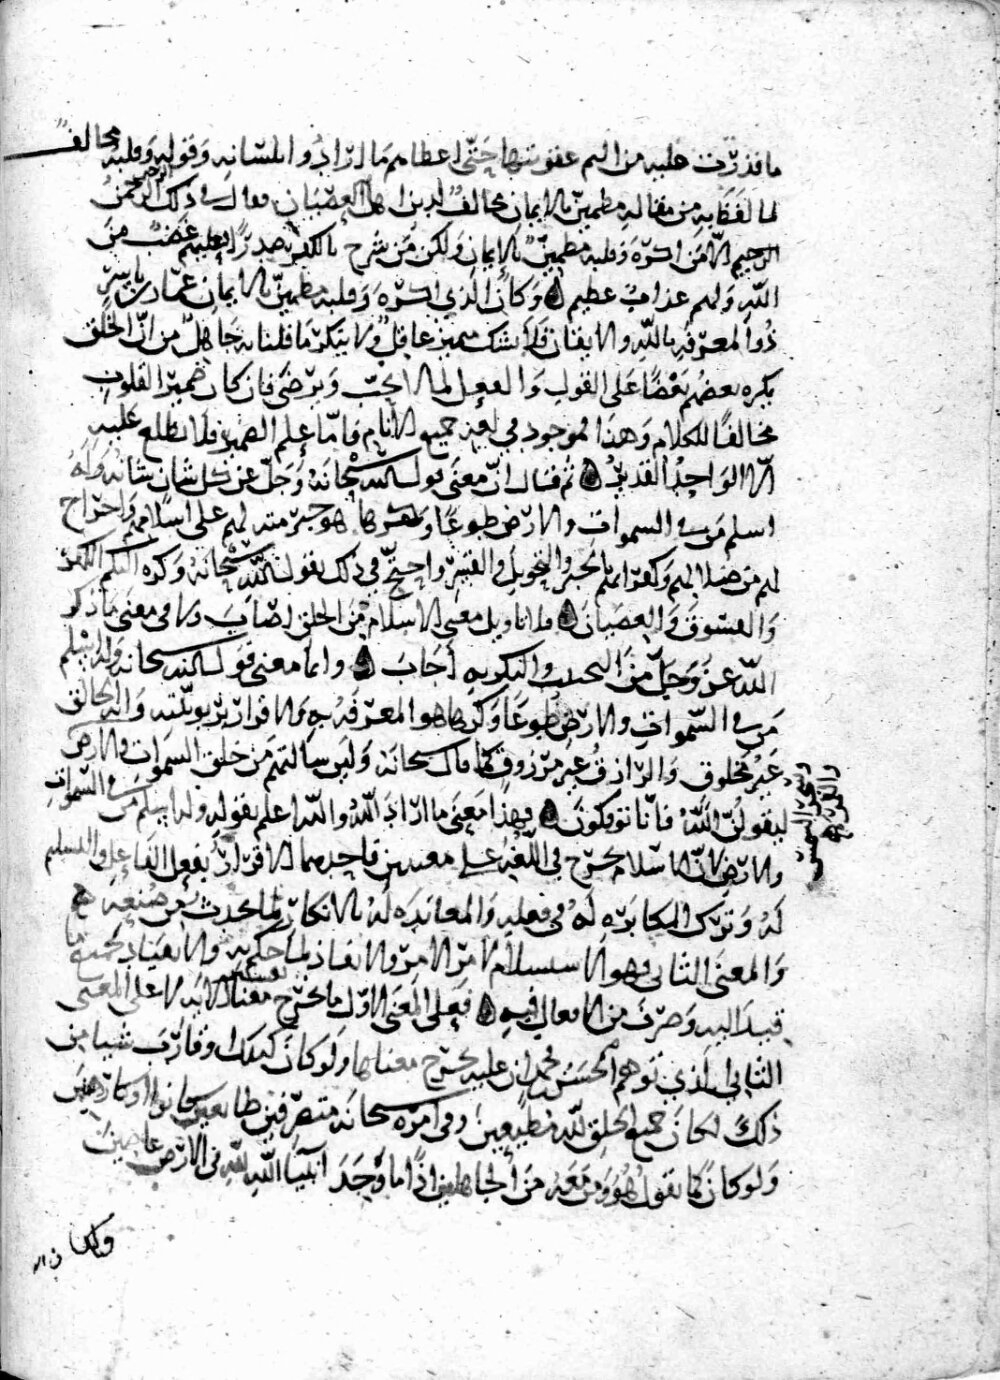 ما قدرت عليه من اليم عقوبتها حتى اعطاهم ما ارادوا بلسانه وقوله وقلبه مخالف
لما لفظ به من مقاله مطمين بالايمان مخالف لدين اهل العصيان فقال في ذلك الرحمن
الرحيم الا من اكره وقلبه مطمين بالايمان ولكن من شرح بالكفر صدرا فعليهم غضب من
الله ولهم عذاب عظيم وكان الذي اكره وقلبه مطمين بالايمان عمار بن ياسر
ذو المعرفة بالله والايقان فلا يشك مميز عاقل ولا ينكر ما قلنا به جاهل من ان الخلق
يكره بعضهم بعضا على القول والفعل لما لا يحب ويرضى فان كان ضمير القلوب
مخالفا للكلام وهذا فموجود في لغة جميع الانام فاما علم الضمير فلا يطلع عليه
الا الواحد القدير ثم قال ان معنى قول الله سبحانه وجل عن كل شان شانه وله
اسلم من في السموات والارض طوعا وكرها هو جبر منه لهم على اسلامهم واخراج
لهم من ضلالهم وكفرانهم بالجبر والتحويل والقسر واحتج في ذلك بقول الله سبحانه وكره اليكم الكفر
والفسوق والعصيان فلا تاويل معنى الاسلام من الخلق اصاب ولا في معنى ما ذكر
الله عز وجل من التحبيب والتكريه اجاب وانما معنى قول الله سبحانه وله اسلم
من في السموات والارض طوعا وكرها هو المعرفة به والاقرار بربوبيته وانه الخالق
غير مخلوق والرازق غير مرزوق كما قال سبحانه ولين سالتهم من خلق السموات والارض
وسخر الشمس والقمر
ليقولن الله فانا توفكون فهذا معنى ما اراد الله والله اعلم بقوله وله اسلم من في السموات
والارض لان الاسلام يخرج في اللغة على معنيين فاحدهما الاقرار بفعل الفاعل والتسليم
له وترك المكابرة له في فعله والمعاندة له بالانكار لما احدث من صنعه
والمعنى الثاني فهو الاستسلام لامر الامر والانفاذ لما حكم به والانقياد لجميع ما
قيد اليه وصرف من الافعال فيه فعلى المعنى الاول ما يخرج معنا الاية لا على المعنى
الثاني الذي توهم الحسن بن محمد ان عليه يخرج معناها ولو كان كذلك او قارب شيا من
ذلك لكان جميع الخلق لله مطيعين وفي امره سبحانه متصرفين طايعين كانوا او كارهين
ولو كان كما يقول هو ومن معه من الجاهلين اذا ما وجد انبيا الله لله في الارض عاصين